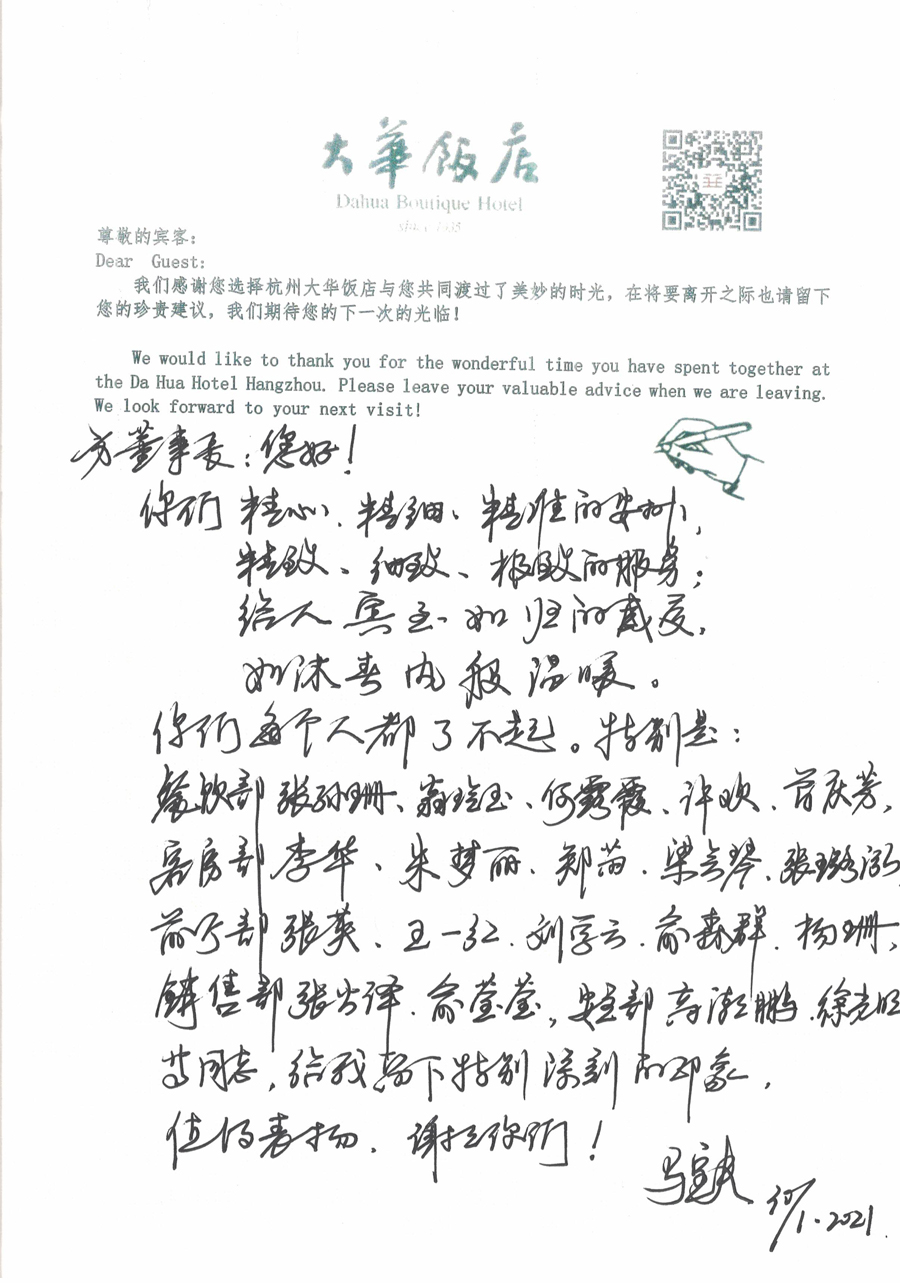 大華飯店
Dahua Boutique Hotel
since 1935
尊敬的宾客：
Dear Guest:
我们感谢您选择杭州大华饭店与您共同渡过了美妙的时光，在将要离开之际也请留下
您的珍贵建议，我们期待您的下一次的光临！
We would like to thank you for the wonderful time you have spent together at
the Da Hua Hotel Hangzhou. Please leave your valuable advice when we are leaving.
We look forward to your next visit!
方董事长：您好！
你们精心、精细、精准的安排，
精致、细致、极致的服务；
给人宾至如归的感受，
如沐春风般温暖。
你们每个人都了不起。特别是：
餐饮部张孙珊、翁玲玉、何露霞、许欢、曾庆芳，
客房部李华、朱梦丽、郑苗、梁会琴、张璐泓
前厅部张英、王一红、刘学云、俞森群、杨珊、
销售部张少译、俞莹莹，安全部高潮鹏、徐光旺
等同志，给我留下特别深刻的印象，
值得表扬、谢托你们！
30/1.2021